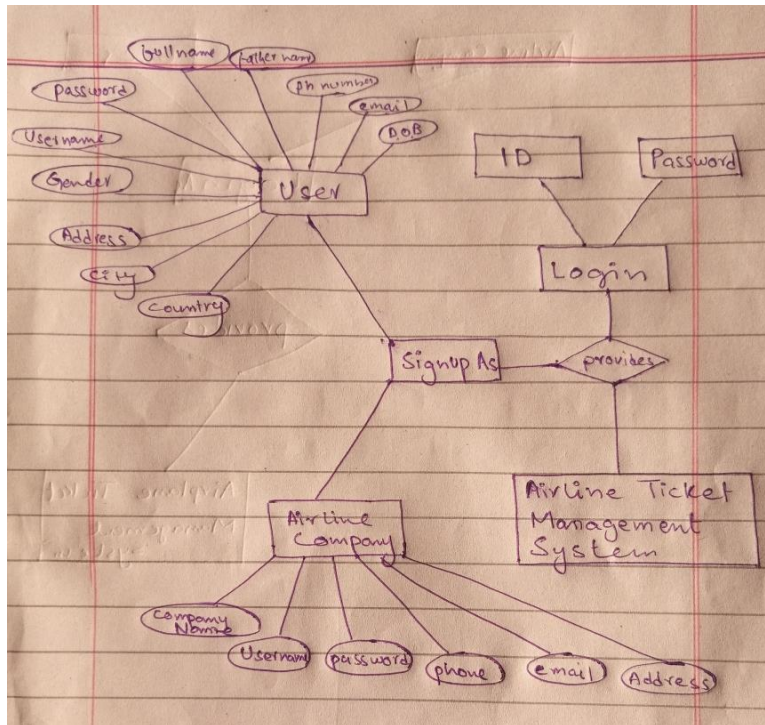 Fullname
Father name
Ph number
email
D.O.B
password
Username
Gender
Address
City
Country
User
ID
Password
Login
Signup As
provides
Airline Ticket
Management
System
Airline
Company
Company
Name
Username
password
phone
email
Address